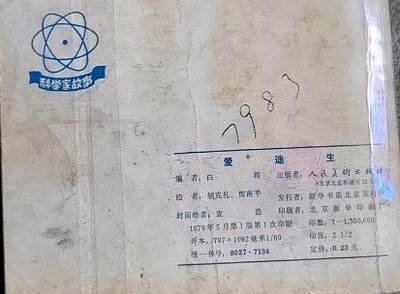 科学家故事
1983
爱迪生
编者：白 出版者：人民美术出版社
绘者：胡克礼、恽南平 发行者：新华书店北京发行
封面绘者：袁浩 印刷者：北京新华印刷
1979年5月第1版第1次印刷 印数：1-1,300,000
开本：787×1092毫米1/60 印张：2 1/2
统一书号：8027·7134 定价：0.23元